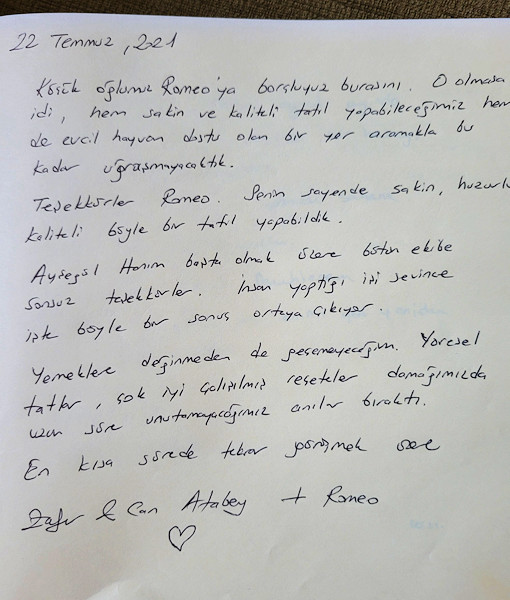 22 Temmuz, 2021
Küçük oğlumuz Romeo'ya borçluyuz burasını. O olmasa
idi, hem sakin ve kaliteli tatil yapabileceğimiz hem
de evcil hayvan dostu olan bir yer aramakla bu
kadar uğraşmayacaktık.
Teşekkürler Romeo. Senin sayende sakin, huzurlu
kaliteli böyle bir tatil yapabildik.
Ayşegül Hanım başta olmak üzere bütün ekibe
sonsuz teşekkürler. İnsan yaptığı işi sevince
işte böyle bir sonuç ortaya çıkıyor.
Yemeklere değinmeden de geçemeyeceğim. Yöresel
tatlar, çok iyi çalışılmış reçeteler damağımızda
uzun süre unutamayacağımız anılar bıraktı.
En kısa sürede tekrar görüşmek üzere
Zafer & Can Atabey + Romeo